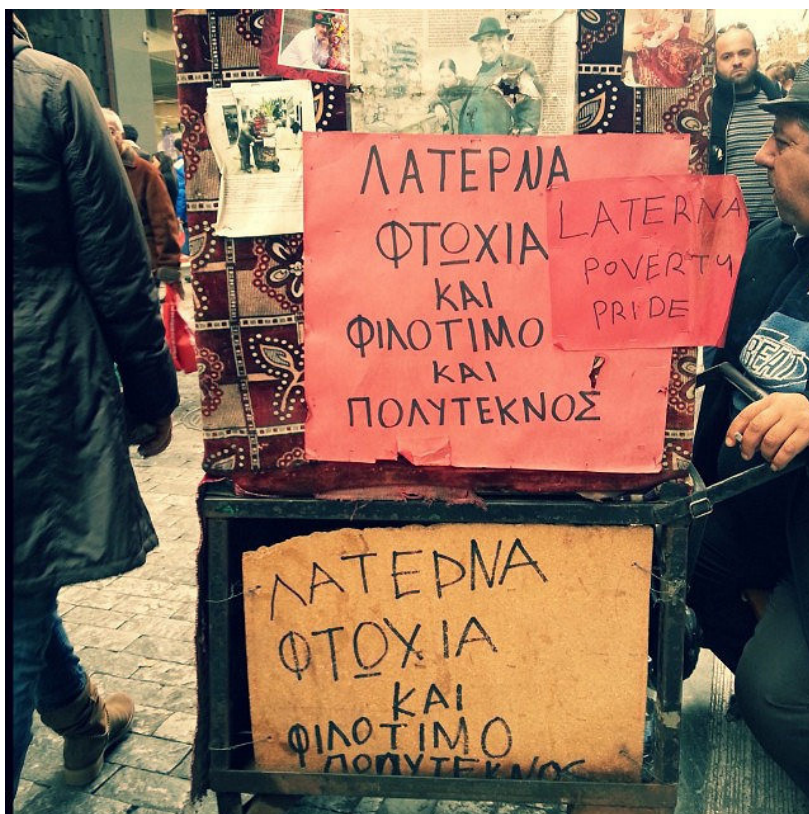 ΛΑΤΕΡΝΑ
ΦΤΩΧΙΑ
ΚΑΙ
ΦΙΛΟΤΙΜΟ
ΚΑΙ
ΠΟΛΥΤΕΚΝΟΣ
LATERNA
POVERTY
PRIDE
ΛΑΤΕΡΝΑ
ΦΤΩΧΙΑ
ΚΑΙ
ΦΙΛΟΤΙΜΟ
ΠΟΛΥΤΕΚΝΟΣ